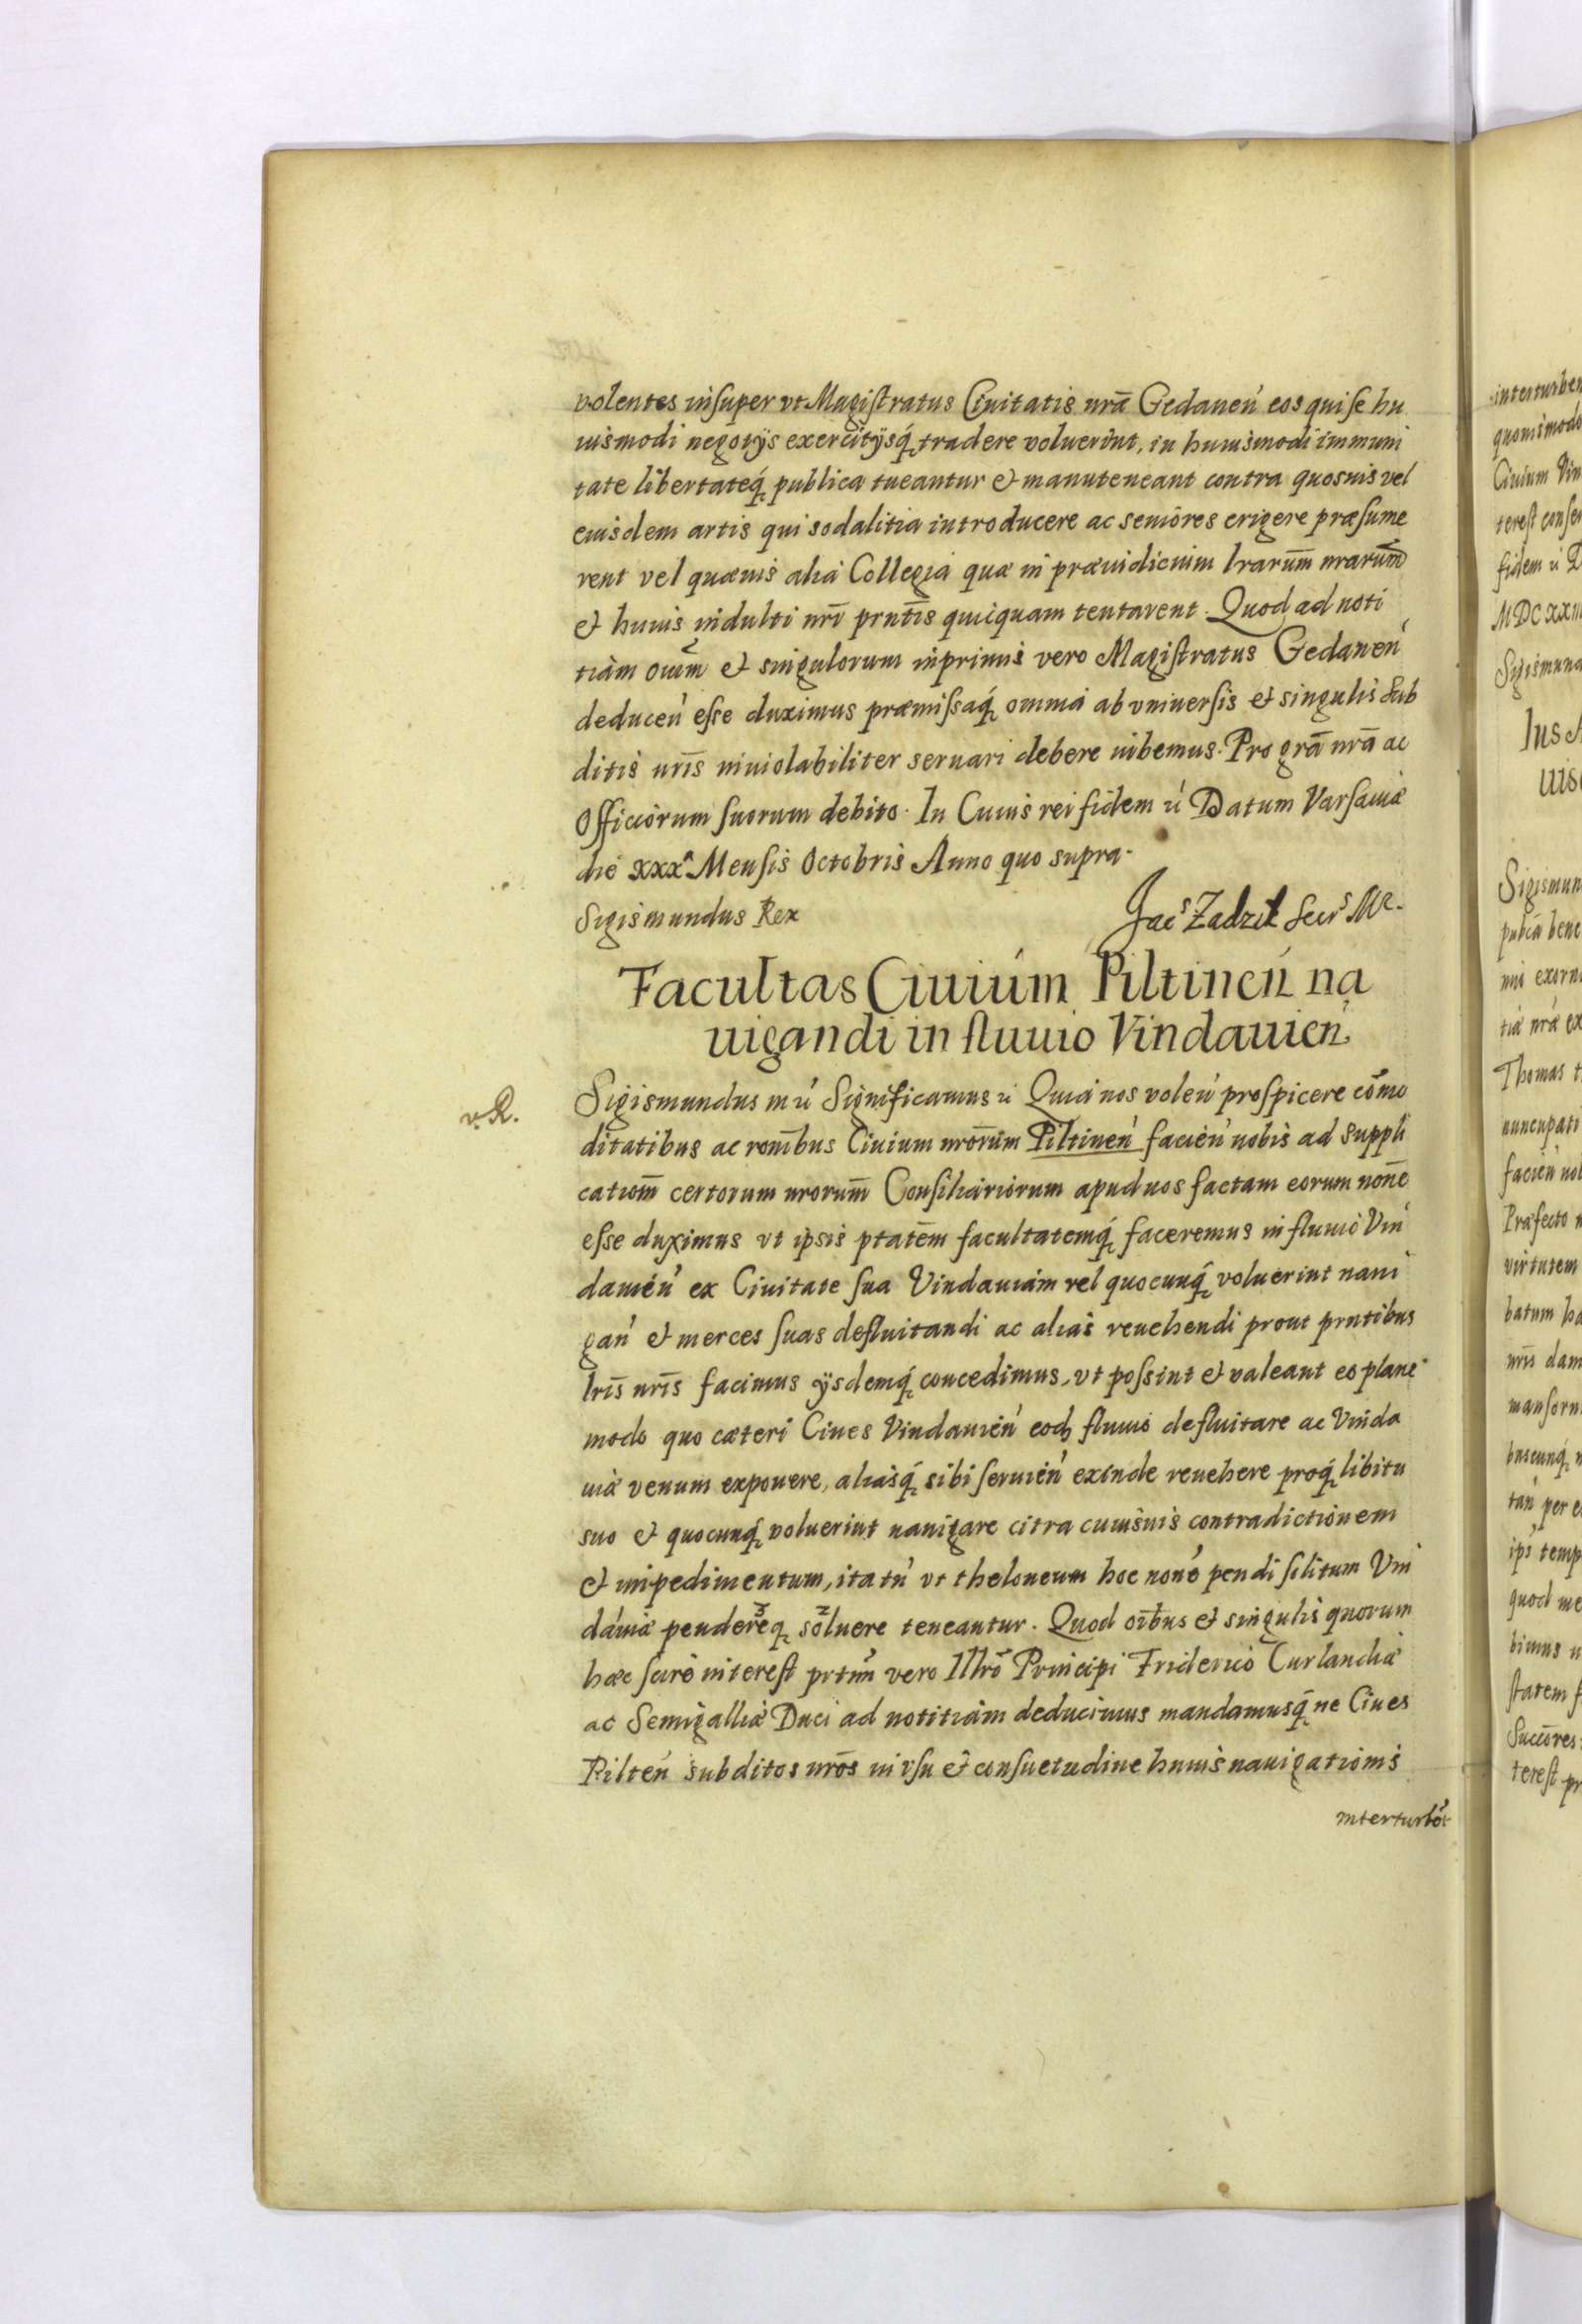 volentes insuper vt Magistratus Ciuitatis nrã Gedaneń eos qui se hu
iusmodi negotÿs exercitÿsq́ tradere voluerint, in huiusmodi immuni
tate libertateq́ publica tueantur et manuteneant contra quosuis vel
eiusdem artis qui sodalitia introducere ac seniores erigere præsume
rent vel quæuis alia Collegia quæ in præiudicium lrarum̄ nrarum̄
et huius indulti nrī prntīs quicquam tentarent. Quod ad noti
tiam oium̄ et singulorum inprimis vero Magistratus Gedaneń
deduceń esse duximus præmissaq́ omnia ab vniuersis et singulis Sub
ditis nrīs inuiolabiliter seruari debere iubemus. Pro grã nrã ac
Officiorum suorum debito. In Cuius rei fidem ú Datum Varsauiæ
die xxxᵃ Mensis Octobris Anno quo supra.
Sigismundus Rex
Jacˢ Zadzik Secrˢ Mr.
Facultas Ciuium Piltineń na
uigandi in fluuio Vindauień
v. R.
Sigismundus m ú Significamus ú Quia nos voleń prospicere com̄o
ditatibus ac ronībus Ciuium nrorūm Piltineń facień nobis ad suppli
catiom̄ certorum nrorum̄ Consiliariorum apud nos factam eorum non̄e
esse duximus vt ipsis ptatēm facultatemq́ faceremus in fluuio Vin
dauień ex Ciuitate sua Vindauiam vel quocunq́ voluerint naui
gań et merces suas defluitandi ac alias reuehendi prout prntibus
lrīs nrīs facimus ÿsdemq́ concedimus, vt possint et valeant eo plane
modo quo cæteri Ciues Vindauień eodꝫ fluuio defluitare ac Vinda
uiæ venum exponere, aliasq́ sibi seruień exinde reuehere proq́ libitu
suo et quocunq́ voluerint nauigare citra cuiusuis contradictionem
et impedimentum, ita tń vt theloneum hoc noné pendi solitum Vin
dauiæ pendereq soluere teneantur. Quod oībus et singulis quorum
hæc scire interest prtim̄ vero Illrō Principi Friderico Curlandiæ
ac Semigalliæ Duci ad notitiam deducimus mandamusq́ ne Ciues
Pilteń subditos nrōs in vsu et consuetudine huius nauigationis